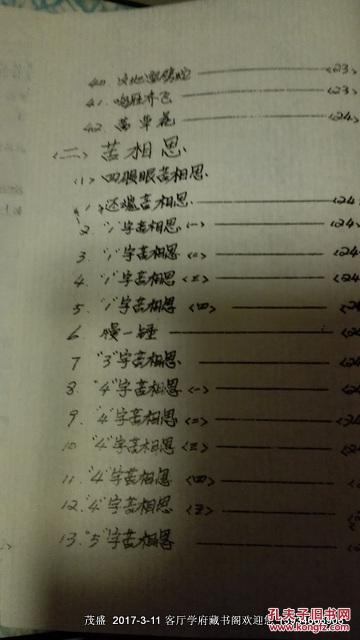 40.
41. 齐飞 <23>
42. 草花 <24>
<二> 苦相思
<1> 四股眼苦相思
还魂苦相思 <24
2 "1"字苦相思 <一> <24
3. "1"字苦相思 <二> <24
4. "1"字苦相思 <三> <24
5. "1"字苦相思 <四> <24
6. 慢一锤
7 "3"字苦相思
8. "4"字苦相思 <一>
9. "4"字苦相思 <二>
10 "4"字苦相思 <三>
11. "4"字苦相思 <四>
12. "4"字苦相思 <五>
13. "5"字苦相思
茂盛 2017-3-11 客厅学府藏书阁欢迎您
孔夫子旧书网
www.kongfz.com